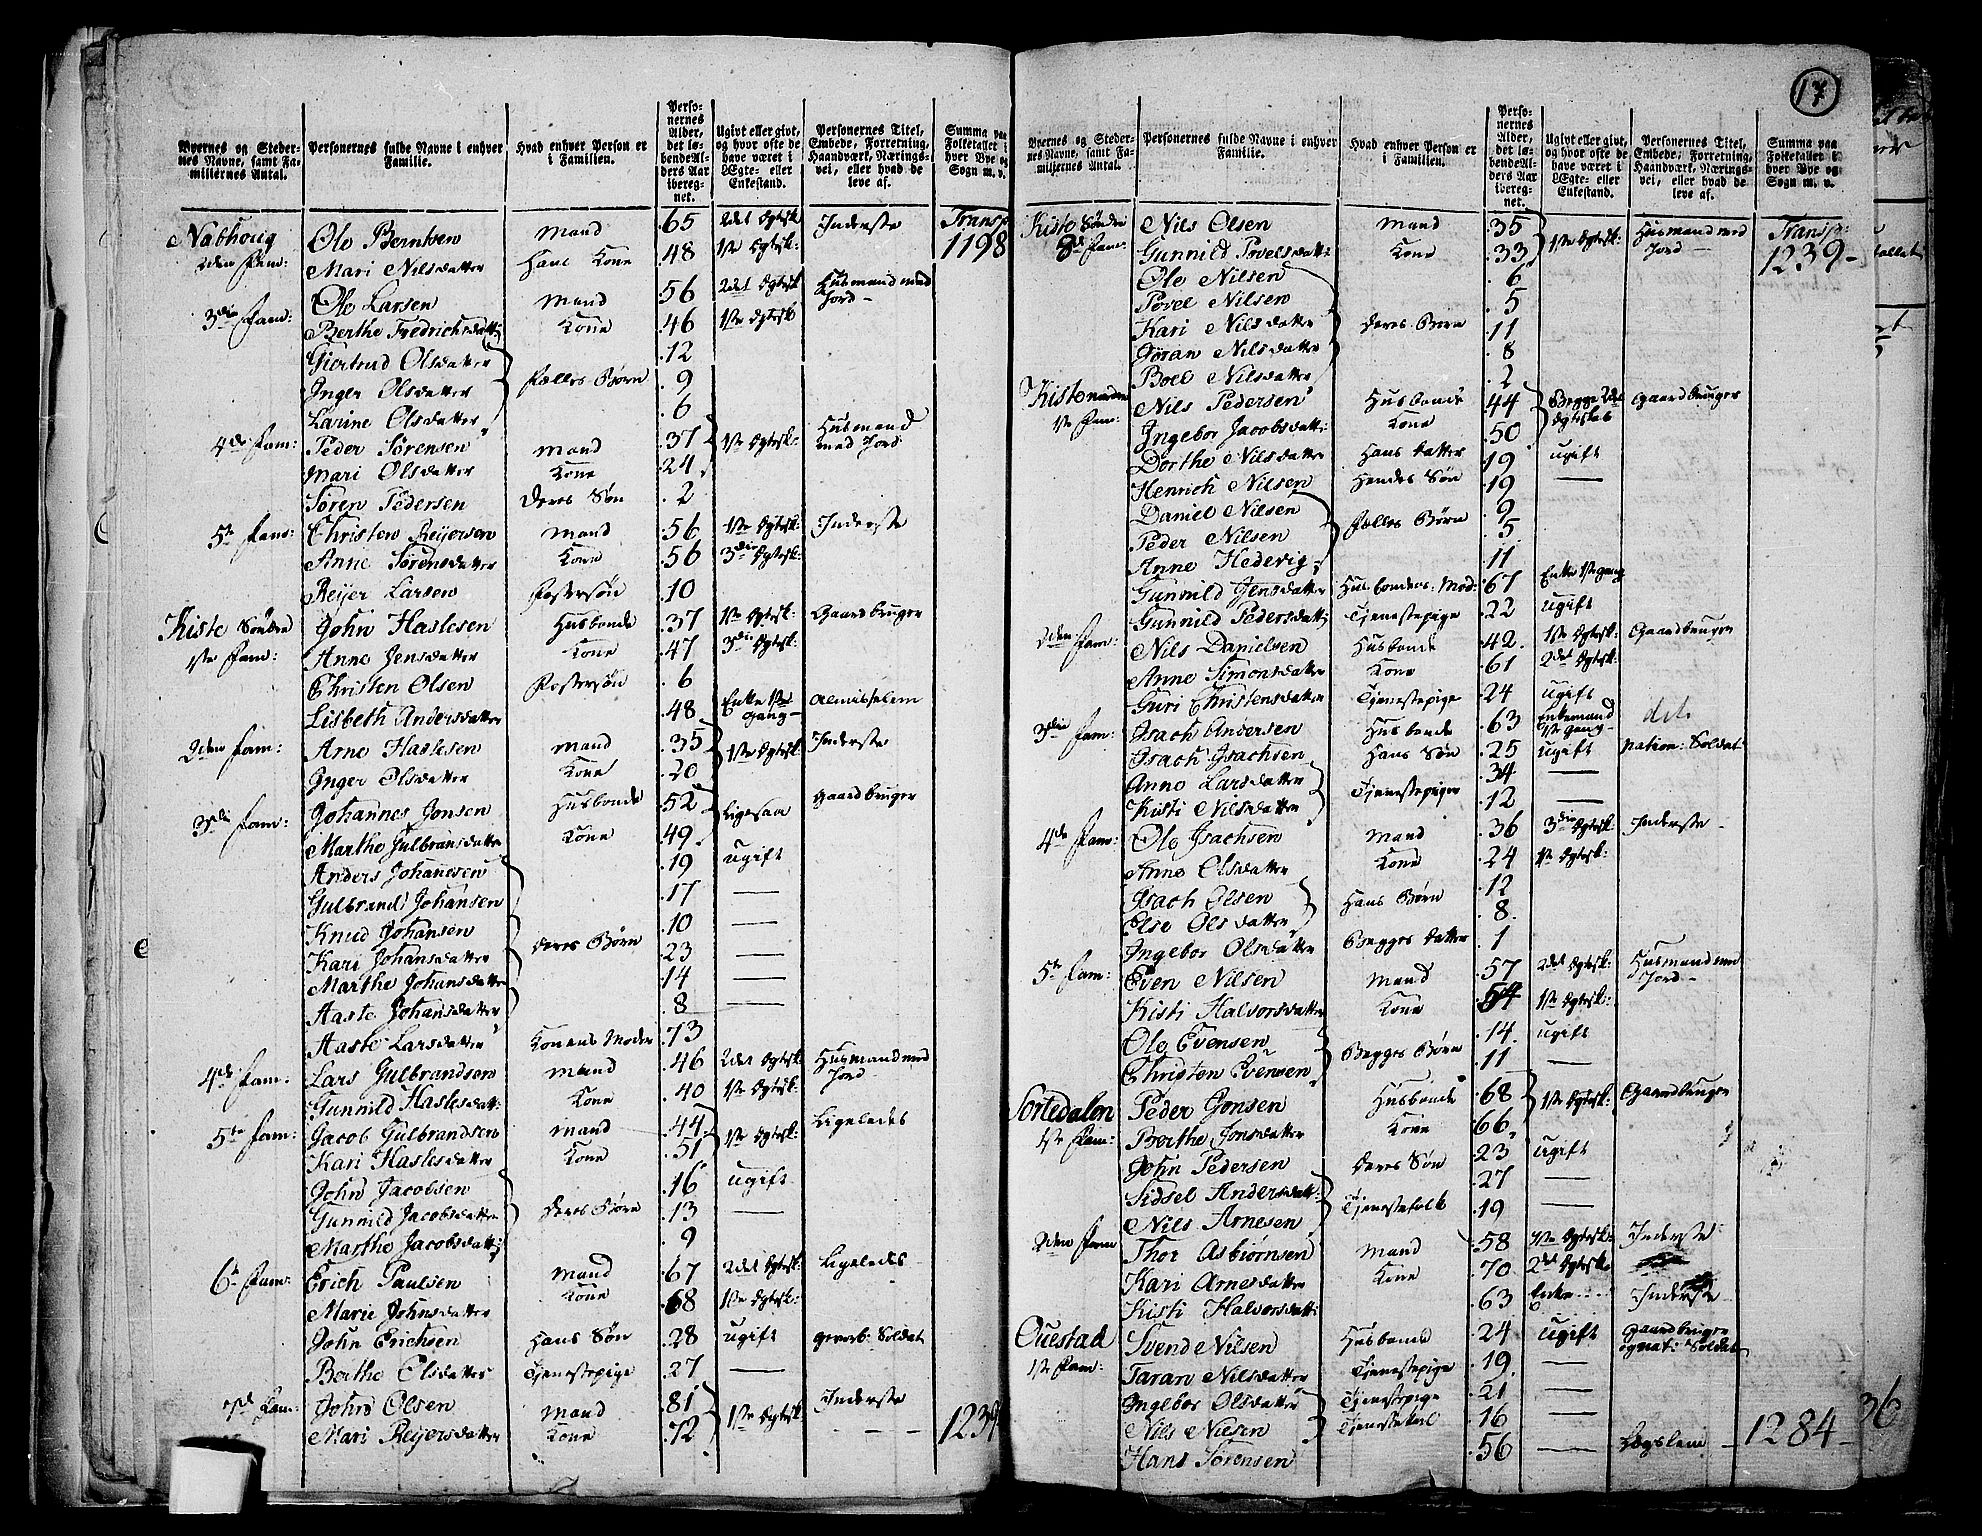 17
Byernes og Stedernes Navne, samt Familiernes Antal.
Personernes fulde Navne i enhver Familie.
Hvad enhver Person er i Familien.
Personernes Alder, det løbende Alders Aar iberegnet.
Ugivt eller givt, og hvor ofte de have været i Ægte- eller Enkestand.
Personernes Titel, Embede, Forretning, Haandværk, Næringsvei, eller hvad de leve af.
Summa paa Folketallet i hver Bye og Sogn m. v.
Transp: 1198
2den Fam: Ole Berntsen Mand 65 2det Egtesk Inderste
Mari Nilsdatter Hans Kone 48 1ste Egtesk:
3die Fam: Ole Larsen Mand 56 2det Egtesk Husmand med Jord
Berthe Fredrichsdatt: Kone 46 1ste Egtesk
Giertrud Olsdatter 12
Inger Olsdatter Fælles Børn 9
Larine Olsdatter 6
4de Fam: Peder Sørensen Mand 37 1ste Egtesk: Husmand med Jord
Mari Olsdatter Kone 24
Søren Pedersen Deres Søn 2
5te Fam: Christen Reijersen Mand 56 1ste Egtesk: Inderste
Anne Sørensdatter Kone 56 3die Egtesk:
Reijer Larsen Fostersøn 10
Kiste Søndre 1ste Fam: John Haslesen Husbonde 37 1ste Egtesk: Gaardbruger
Anne Jensdatter Kone 47 3die Egtesk:
Christen Olsen Fostersøn 6
Lisbeth Andersdatter 48 Enke 1ste Gang Almisselem
2den Fam: Arne Haslesen Mand 35 1ste Egtesk: Inderste
Inger Olsdatter Kone 20
3die Fam: Johannes Jonsen Husbonde 52 Ligesaa Gaardbruger
Marthe Gulbransdatter Kone 49
Anders Johannesen 19 ugift
Gulbrand Johansen 17 —
Knud Johansen 10 —
Kari Johansdatter Deres Børn 23 —
Marthe Johansdatter 14 —
Aaste Johansdatter 8 —
Aaste Larsdatter Konens Moder 73
4de Fam: Lars Gulbrandsen Mand 46 2det Egtesk: Husmand med Jord
Gunnild Haslesdatt: Kone 40 1ste Egtesk:
5te Fam: Jacob Gulbrandsen Mand 44 1ste Egtesk: Ligeledes
Kari Haslesdatter Kone 51
John Jacobsen 16 ugift
Gunnild Jacobsdatter Deres Børn 13 —
Marthe Jacobsdatt: 9
6te Fam: Erich Paulsen Mand 67 2det Egtesk: Ligeledes
Marie Johnsdatter Kone 68 1ste Egtesk:
John Erichsen Hans Søn 28 ugift geverb: Soldat
Berthe Olsdatter Tjenestepige 27 —
7de Fam: John Olsen Mand 81 1ste Egtesk: Inderste
Mari Reijersdatter Kone 72 1239
Byernes og Stedernes Navne, samt Familiernes Antal.
Personernes fulde Navne i enhver Familie.
Hvad enhver Person er i Familien.
Personernes Alder, det løbende Alders Aar iberegnet.
Ugivt eller givt, og hvor ofte de have været i Ægte- eller Enkestand.
Personernes Titel, Embede, Forretning, Haandværk, Næringsvei, eller hvad de leve af.
Summa paa Folketallet i hver Bye og Sogn m. v.
Transp: 1239
Kiste Søndre 8de Fam: Nils Olsen Mand 35 1ste Egtesk: Husmand med Jord
Gunnild Povelsdatt: Kone 33
Ole Nilsen 6
Povel Nilsen 5
Kari Nilsdatter Deres Børn 11
Jøran Nilsdatter 8
Boel Nilsdatter 2
Kiste nordre 1ste Fam: Nils Pedersen Husbonde 44 Begge 2det Egteskab Gaardbruger
Ingebor Jacobsdatt: Kone 50
Dorthe Nilsdatter Hans Datter 19 ugift
Henrich Nilsen Hendes Søn 19 —
Daniel Nilsen 9
Peder Nilsen Fælles Børn 5
Anne Hedevig 11
Gunnild Jensdatter Husbondens Mod: 67 Enke 1ste gang
Gunnild Pedersdatt: Tjenestepige 22 ugift
2den Fam: Nils Danielsen Husbonde 42 1ste Egtesk: Gaardbruger
Anne Simonsdatter Kone 61 2det Egtesk:
Guri Christensdatter Tjenestepige 24 ugift
3die Fam: Isach Andersen Husbonde 63 Enkemand 1ste gang det
Isach Isachsen Hans Søn 25 ugift nation: Soldat
Anne Larsdatter Tjenestepiger 34 —
Kisti Nilsdatter 12 —
4de Fam: Ole Isachsen Mand 36 3die Egtesk: Inderste
Anne Olsdatter Kone 24 1ste Egtesk:
Isach Olsen Hans Børn 12
Else Olsdatter 8
Ingebor Olsdatter Begges Datter 1
5te Fam: Even Nilsen Mand 57 2det Egtesk: Husmand med Jord
Kisti Halvorsdatter Kone 54 1ste Egtesk:
Ole Evensen Begges Børn 14 ugift
Christen Evensen 11 —
Sortedalen 1ste Fam: Peder Jonsen Husbonde 68 1ste Egtesk: Gaardbruger
Berthe Jonsdatter Kone 66
John Pedersen Deres Søn 23 ugift
Sidsel Andersdatt: Tjenestefolk 27 —
Nils Arnesen 19 —
2den Fam Thor Asbiørnsen Mand 58 1ste Egtesk: Inderste
Kari Arnesdatter Kone 70 2det Egtesk:
Kisti Halvorsdatt: 63 Enke Inderste
Ouestad 1ste Fam: Svend Nilsen Husbond 24 ugift Gaardbruger og nat: Soldat
Taran Nilsdatter Tjenestepige 19 —
Ingebor Olsdatter Tjenestepige 21 —
Nils Nilsen 16 —
Hans Sørensen 56 — Lægslem 1284
36